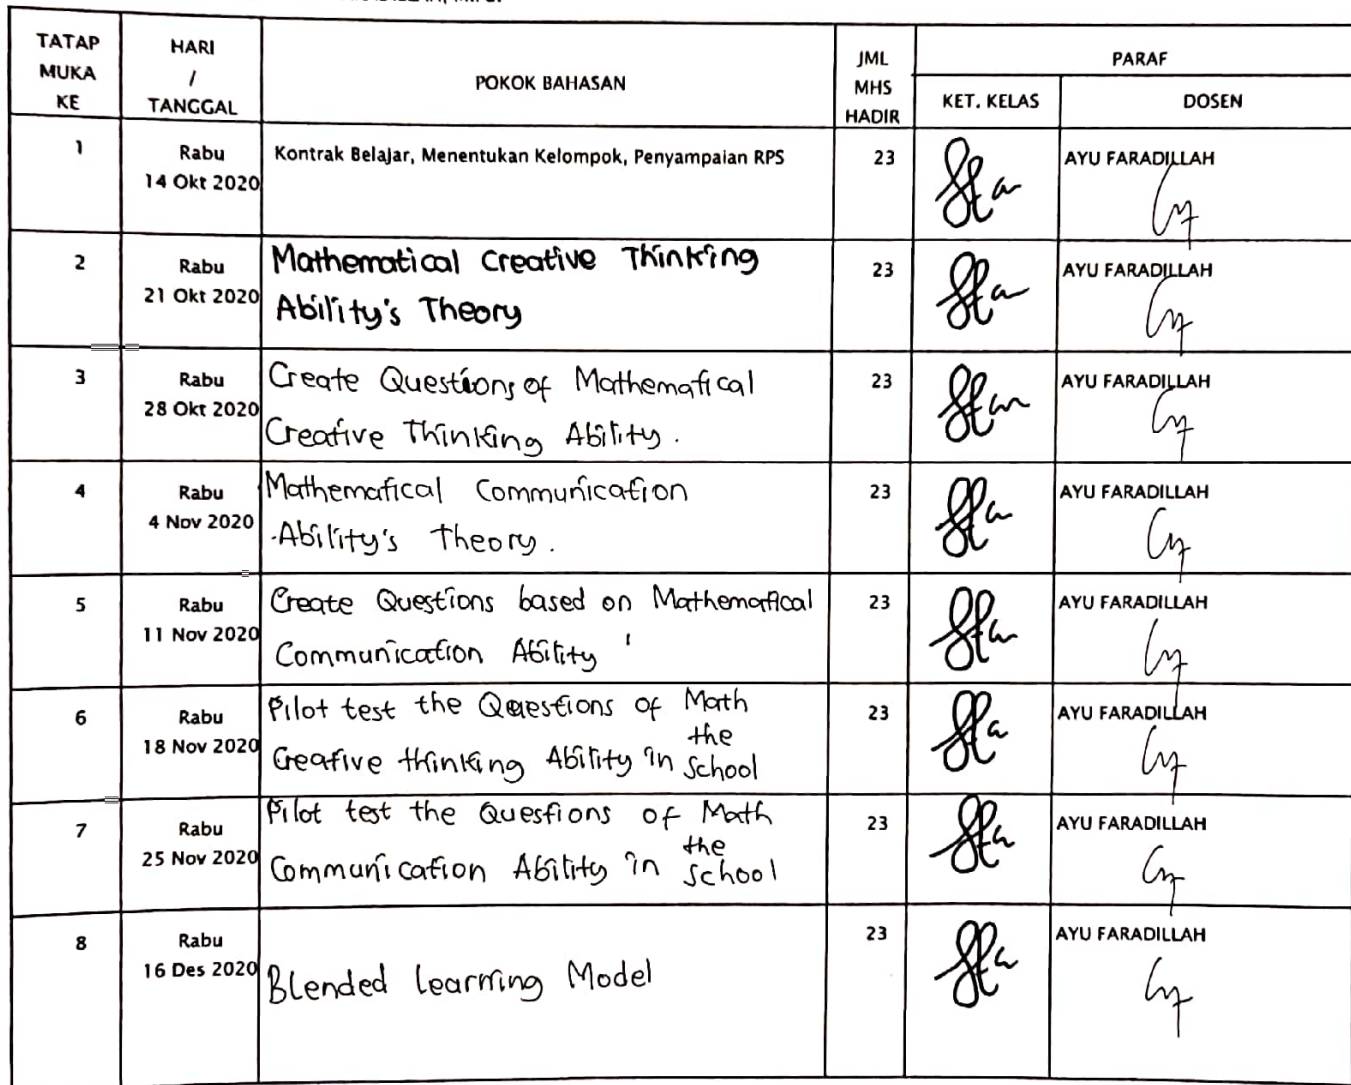 TATAP MUKA KE
HARI / TANGGAL
POKOK BAHASAN
JML MHS HADIR
PARAF
KET. KELAS
DOSEN
1
Rabu
14 Okt 2020
Kontrak Belajar, Menentukan Kelompok, Penyampaian RPS
23
AYU FARADILLAH
2
Rabu
21 Okt 2020
Mathematical Creative Thinking
Ability's Theory
23
AYU FARADILLAH
3
Rabu
28 Okt 2020
Create Questions of Mathematical
Creative Thinking Ability.
23
AYU FARADILLAH
4
Rabu
4 Nov 2020
Mathematical Communication
Ability's Theory.
23
AYU FARADILLAH
5
Rabu
11 Nov 2020
Create Questions based on Mathematical
Communication Ability
23
AYU FARADILLAH
6
Rabu
18 Nov 2020
Pilot test the Questions of Math
Creative thinking Ability in the School
23
AYU FARADILLAH
7
Rabu
25 Nov 2020
Pilot test the Questions of Math
Communication Ability in the School
23
AYU FARADILLAH
8
Rabu
16 Des 2020
Blended Learning Model
23
AYU FARADILLAH